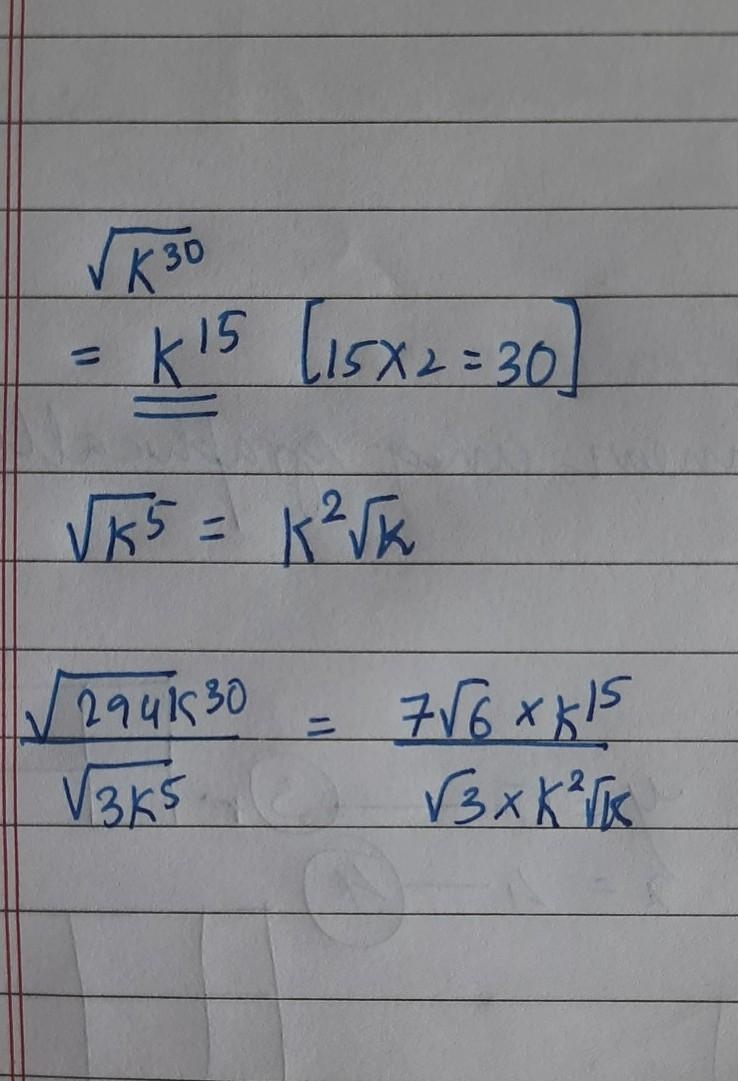 √K³⁰
= K¹⁵ [15×2=30]
√K⁵ = K²√K
√294K³⁰ / √3K⁵ = 7√6 × K¹⁵ / √3 × K²√K